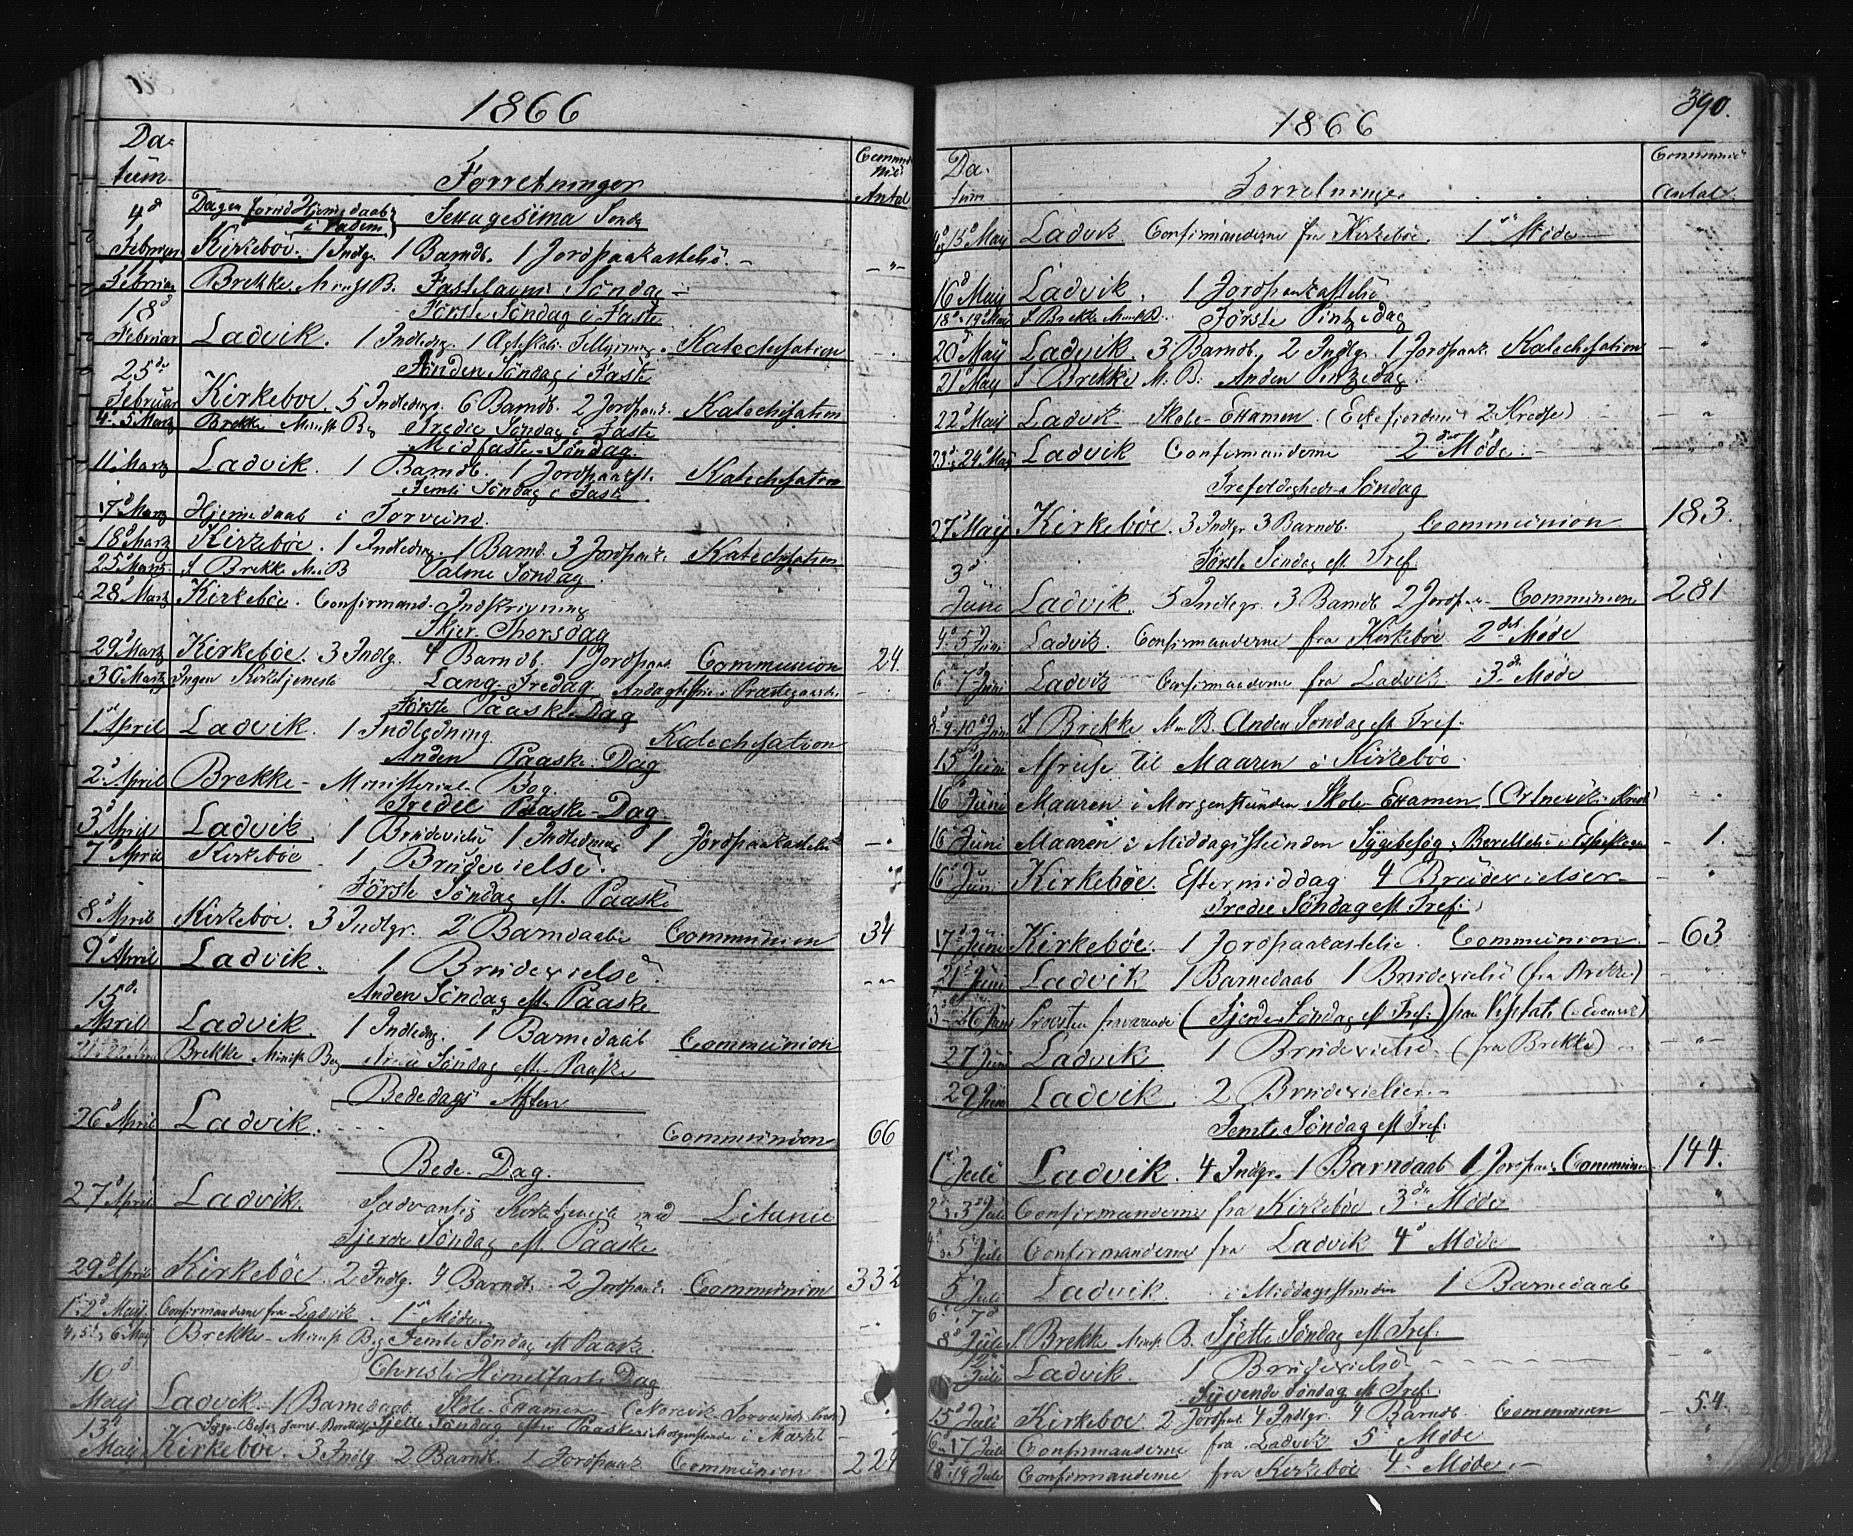 1866
Da-
tum
Forretninger
Communi
Antal
4d Dagen forud Hjemedaab i Vadem Sexagesima Sønd
Februar Kirkebøe. 1 Indlg. 1 Barnd. 1 Jordpaakastelse. -
Februar Brekke Minist B. Fastelavns Søndag -
18d Første Søndag i Faste
Februar Ladvik. 1 Indledng. Katechisation
25de Anden Søndag i Faste
Februar Kirkebøe. 5 Indledng. 6 Barndb. 2 Jordpaak. Katechisation
4-5 Martz Brekke Minist Bog Tredie Søndag i Faste
Midfaste-Søndag.
11 Martz Ladvik. 1 Barndb. 1 Jordpaakst. Katechisation
Femte Søndag i Faste
17d Martz Hjemedaab i Torvund.
18d Martz Kirkebøe. 1 Indledng. 1 Barnd. 3 Jordpaak. Katechisation
25d Martz I Brekke M. B Palme Søndag
28d Martz Kirkebøe. Confirmand-Indskrivning
Skjer-Thorsdag
29d Martz Kirkebøe. 3 Indlg. 4 Barndb. 1 Jordpaak. Communion 24.
30 Martz Ingen Kirketjeneste Lang-Fredag
Første Paaske-Dag
1st April Ladvik 1 Indledning. Katechisation
Anden Paaske-Dag
2d April Brekke - Ministerial-Bog
Tredie Paaske-Dag
3d April Ladvik 1 Brudevielse 1 Indledning 1 Jordpaakastelse
7d April Kirkebøe 1 Brudevielse.
Første Søndag eft. Paaske
8d April Kirkebøe. 3 Indlgr. 2 Barndaabe Communion 34
9d April Ladvik. 1 Brudevielse.
Anden Søndag eft. Paaske
15de
April Ladvik. 1 Indledng. 1 Barnedaab Communion
Brekke Minist Bog Tredie Søndag eft. Paaske
Bededags Aften
26d April Ladvik. Communion 66
Bede-Dag.
27d April Ladvik. Sædvanlig Kirketjeneste med Litanie
Fjerde Søndag eft. Paaske
29d April Kirkebøe 2 Indlg. 4 Barndb. 2 Jordpaak. Communion 332
1-2d May Confirmanderne fra Ladvik. 1ste Møde
4, 5 & 6 May Brekke-Minist Bog Femte Søndag eft Paaske
10d Christi Himmelfarts Dag
May Ladvik-1 Barnedaab Skole-Examen-(Norevik-Torvunds Kreds)
13d Sjette Søndag efter Paaske
May Kirkebøe. 3 Indlg. 2 Barndb. 1 Jordpaak Communion 224
1866
390.
Da-
tum
Forretninger
Communi
Antal.
14-15d May Ladvik Confirmanderne fra Kirkebøe. 1ste Møde
16d May Ladvik. 1 Jordpaakastelse
18d-19d May I Brekke Minist B. Første Pintzedag
20d May Ladvik 3 Barndb. 2 Indlg. 1 Jordpaak. Katechisation
21 May I Brekke M. B. Anden Pintzedag
22d May Ladvik Skole-Examen
23d-24d May Ladvik Confirmanderne 2det Møde.
Trefoldigheds-Søndag
27d May Kirkebøe. 3 Indlgr 3 Barndb. Communion 183.
Første Søndag eft. Tref.
3d
Juni Ladvik. 5 Indlgr. 3 Barndb 2 Jordpaa- Communion 281
4d 5 Juni Ladvik. Confirmanderne fra Kirkebøe 2det Møde
6 7d Juni Ladvik Confirmanderne fra Ladvik. 3die Møde
8d-9-10d Juni I Brekke M. B. Anden Søndag eft Tref.
15 Juni Afreise til Maaren i Kirkebøe.
16 Juni Maaren i Morgenstunden Skole-Examen (Ortnevik-Kreds)
16 Juni Maaren i Middagsstunden Sygebesøg, Berettelse 1.
16d Juni Kirkebøe. Eftermiddag 4 Brudevielser
Tredie Søndag eft Tref.
17d Juni Kirkebøe 1 Jordpaakastelse. Communion 63
21d Juni Ladvik 1 Barnedaab 1 Brudevielse (fra Brekke)
23-26 Juni Provsten fraværende (Fjerde Søndag eft Tref:) paa Visitats
27 Juni Ladvik 1 Brudevielse. (fra Brekke)
29 Juni Ladvik. 2 Brudevielser.
Femte Søndag eft Tref.
1st Juli Ladvik. 4 Indlgr. 1 Barndaab 1 Jordpaa. Communion 144.
2-3d Juli Confirmanderne fra Kirkebøe. 3die Møde
4-5 Juli Confirmanderne fra Ladvik 4d Møde
5 Juli Ladvik. i Middagsstunden 1 Barnedaab
6 7d
8d Juli I Brekke Minist. B. Sjette Søndag eft Tref.
12
Juli Ladvik. 1 Brudevielse
Syvende Søndag eft Tref.
15d Juli Kirkebøe 2 Jordpaa 4 Indlgr. 4 Barndb. Communion 54.
16-17 Juli Confirmanderne fra Ladvik 5 Møde
18.19 Juli Confirmanderne fra Kirkebøe 4d Møde